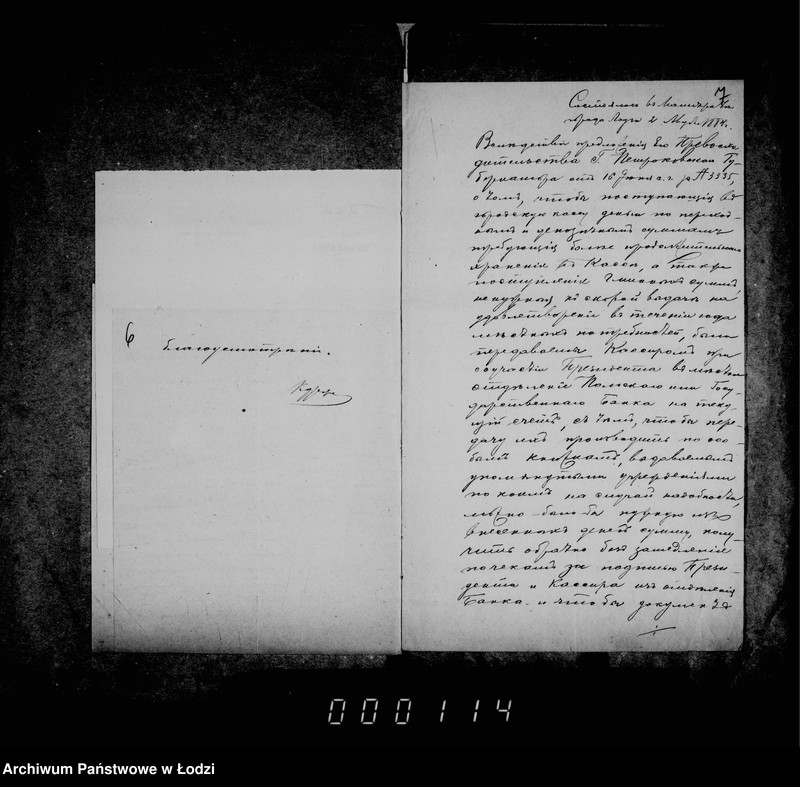 6
благоусмотрѣнiи.
7
Состоялось въ Магистратѣ
города Лодзи 2 1884.
Вслѣдствiе предложенiя Его Превосхо-
дительства Г. Петроковскаго Гу-
бернатора отъ 16 Iюня с. г. за № 3335,
о томъ, чтобы поступающiя въ
городскую кассу деньги по переход-
нымъ и депозитнымъ суммамъ
требующiя болѣе продолжительнаго
храненiя въ Кассѣ, а также
поступленiя суммъ,
ненужныя къ скорой выдачѣ на
удовлетворенiе въ теченiи года
потребностей, были
передаваемы Кассиромъ при
соучастiи Президента въ мѣстном
отдѣленiи Польскаго или Госу-
дарственнаго Банка на теку-
щiй счетъ, съ тѣмъ, чтобы пере-
дачу ихъ производить по осо-
бымъ книжкамъ, выдаваемымъ
упомянутыми учрежденiями
по коимъ на случай надобности,
можно было бы нужную изъ
внесенныхъ денегъ сумму, полу-
чить обратно безъ замедленiя
по чекамъ за подписью Прези-
дента и Кассира изъ отдѣленiя
Банка и чтобы документы
000114
Archiwum Państwowe w Łodzi